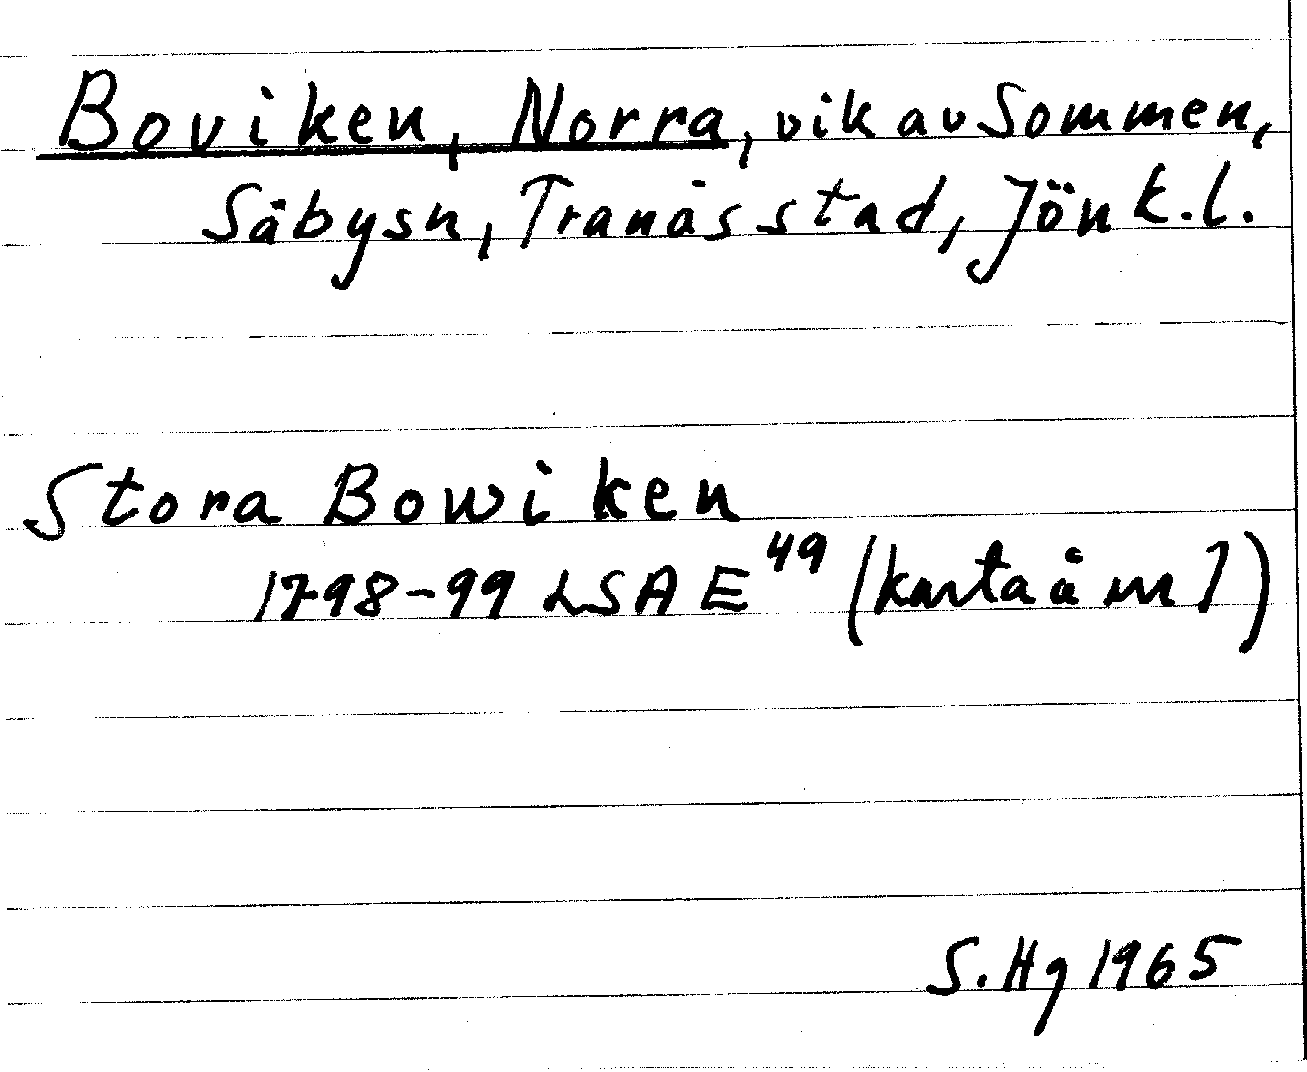 Boviken, Norra, vik av Sommen,
Säbysn, Tranås stad, Jönk.l.
Stora Bowiken
1798-99 LSA E49 (karta ä m 1)
S.Hg 1965